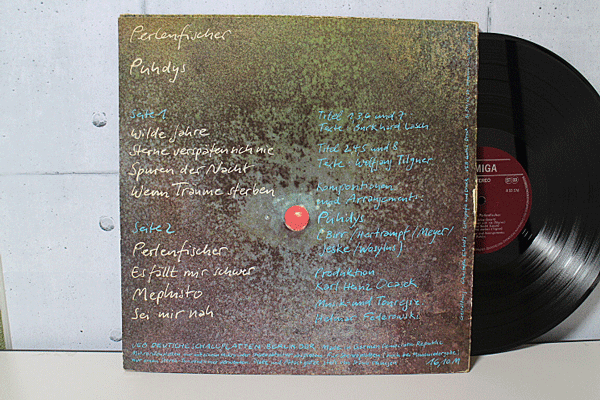 Perlenfischer
Puhdys
Seite 1
Wilde Jahre
Sterne verspäten sich nie
Spuren der Nacht
Wenn Träume sterben
Seite 2
Perlenfischer
Es fällt mir schwer
Mephisto
Sei mir nah
Titel 1 3 6 und 7
Texte: Burkhard Lasch
Titel 2 4 5 und 8
Texte: Wolfgang Tilgner
Kompositionen
und Arrangements
Puhdys
(Birr/Hertrampf/Meyer/
Jeske/Wosylus)
Produktion
Karl Heinz Ocasek
Musik und Tonregie
Helmar Federowski
VEB DEUTSCHE SCHALLPLATTEN BERLIN DDR
16,10 M
AMIGA
STEREO